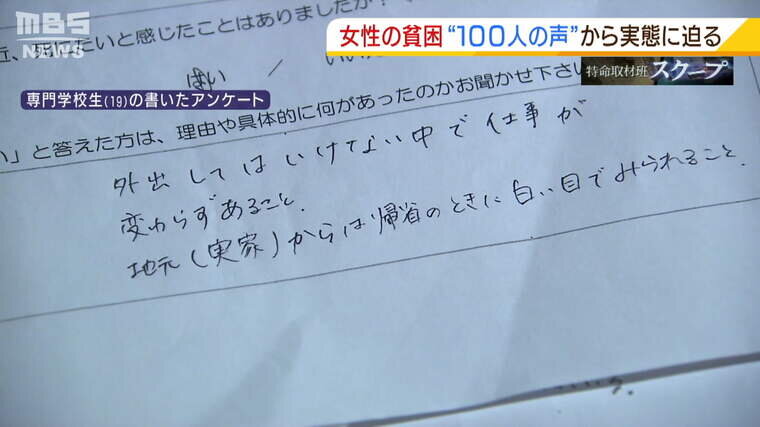 MBS NEWS
女性の貧困 “100人の声”から実態に迫る
特命取材班 スクープ
近、死にたいと感じたことはありましたか？
はい / いいえ
専門学校生(19)の書いたアンケート
い」と答えた方は、理由や具体的に何があったのかお聞かせ下さい
外出してはいけない中で仕事が
変わらずあること.
地元(実家)からは帰省のときに白い目でみられること.